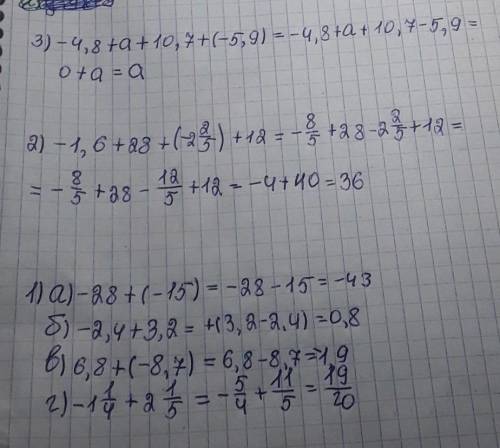 3) -4,8+a+10,7+(-5,9)=-4,8+a+10,7-5,9=
0+a=a
2) -1,6+28+(-2 2/5)+12=-8/5+28-2 2/5+12=
=-8/5+28-12/5+12=-4+40=36
1) а) -28+(-15)=-28-15=-43
б) -2,4+3,2=+(3,2-2.4)=0,8
в) 6,8+(-8,7)=6,8-8,7=-1,9
г) -1 1/4+2 1/5=-5/4+11/5=19/20